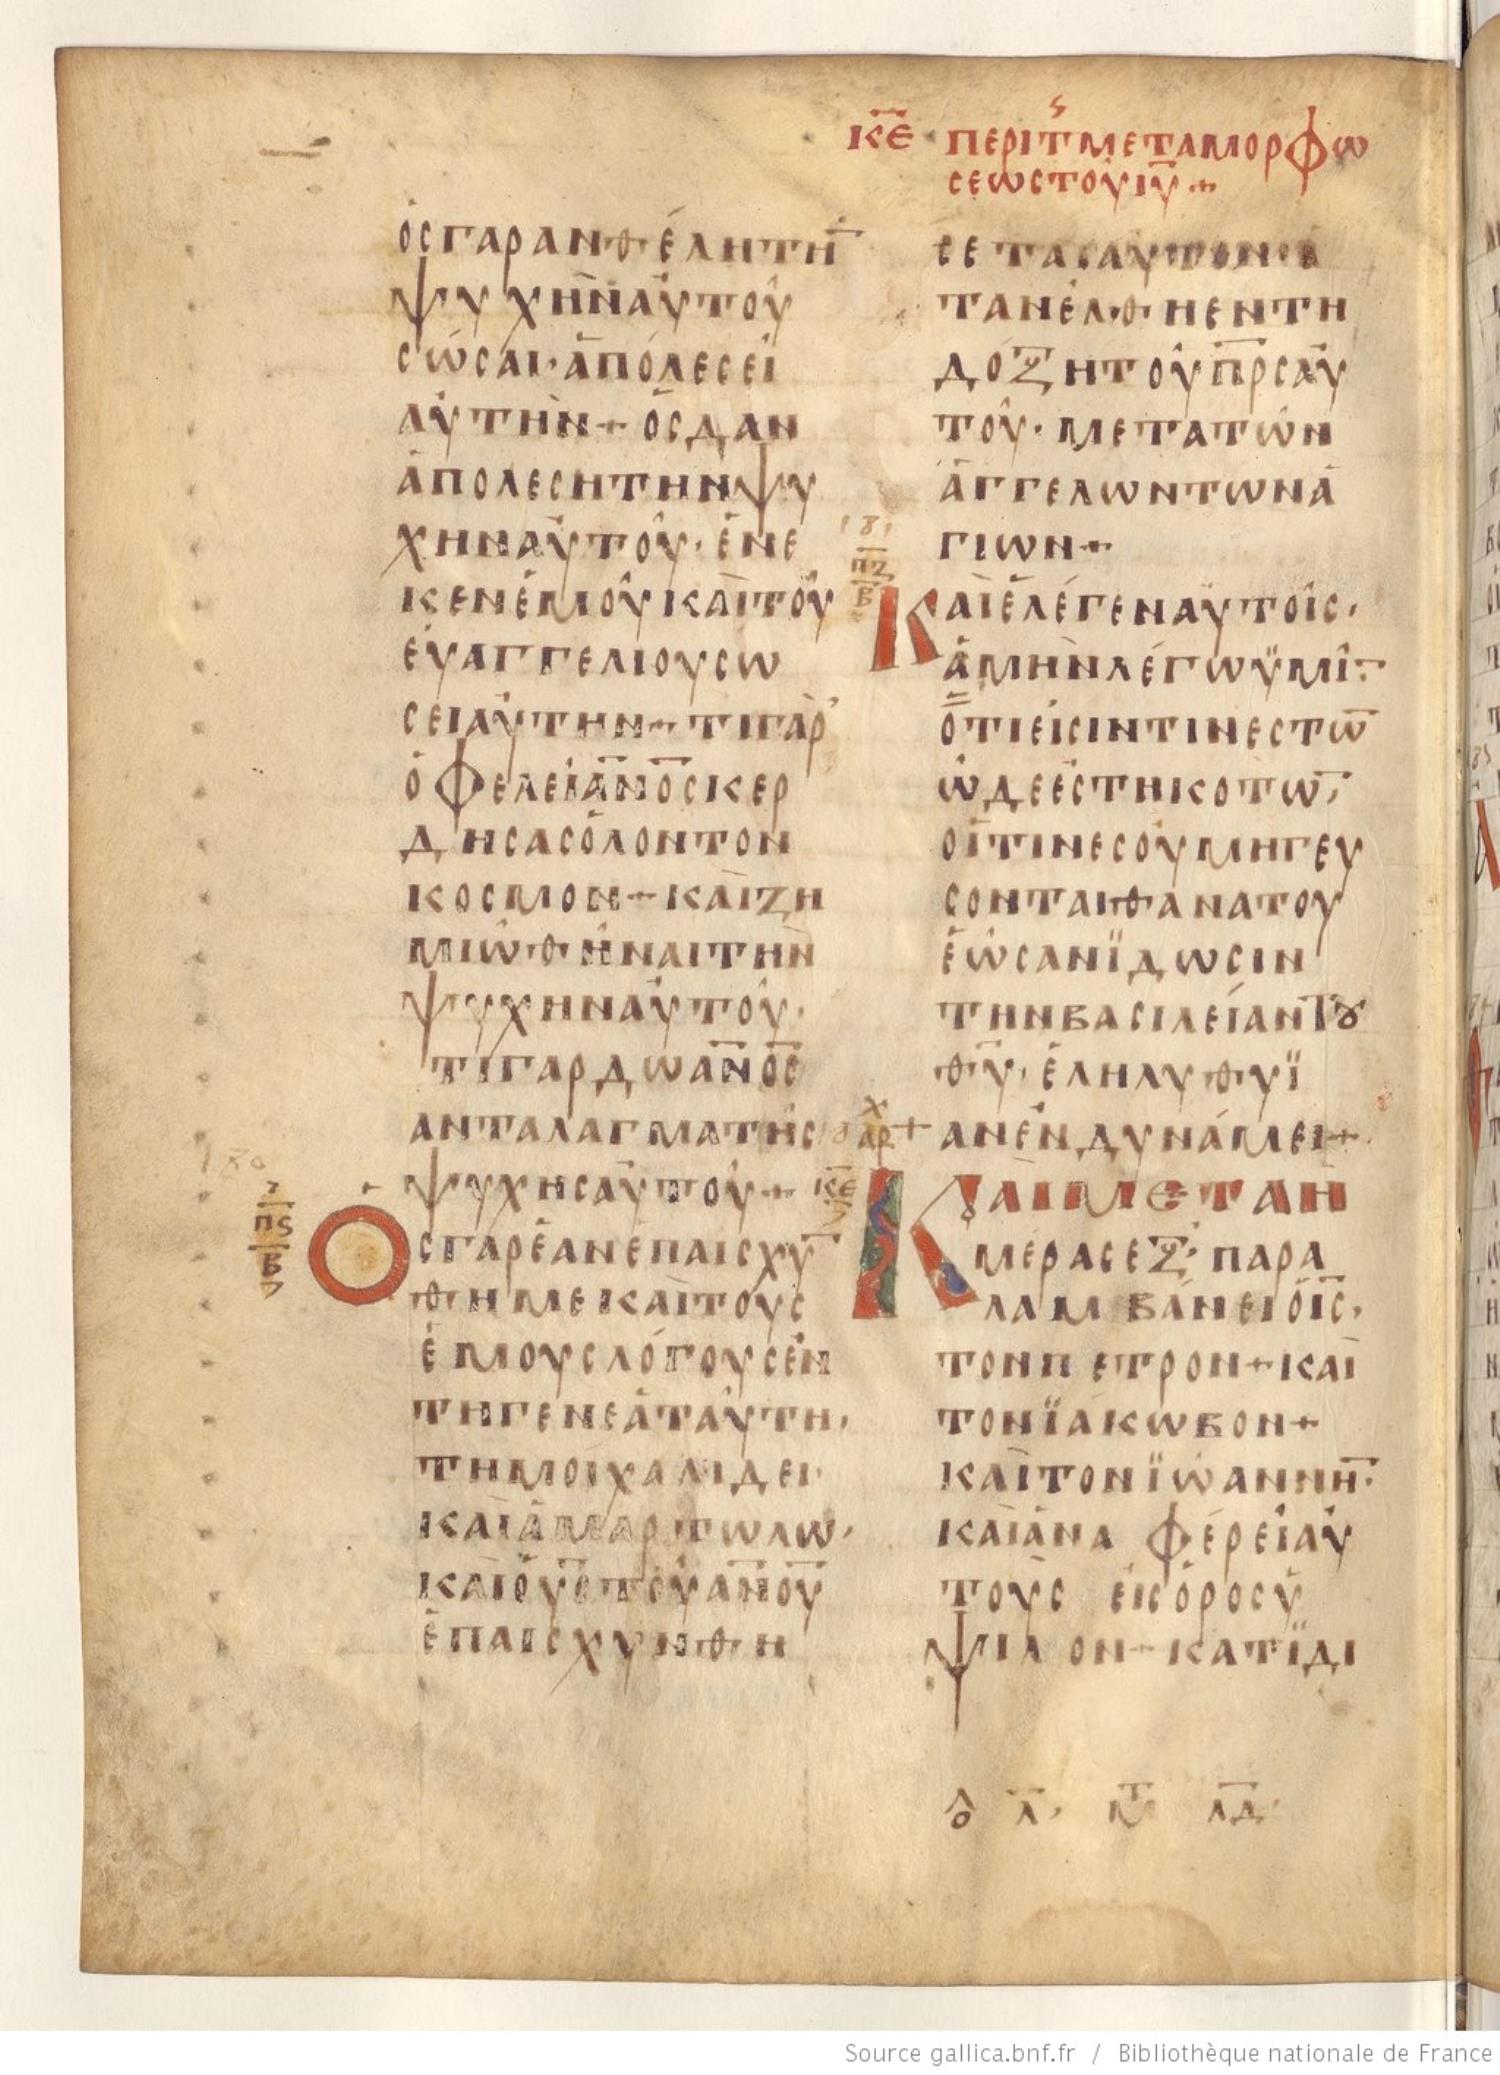 κε περι τ μεταμορφω
σεωσ του ιυ +
οσ γαρ αν θελη τη̅
ψυχην αυτου
σωσαι · απολεσει
αυτην + οσ δ αν
απολεση την ψυ
χην αυτου · ενε
κεν εμου και του
ευαγγελιου σω
σει αυτην + τι γαρ
οφελει α̅ν̅ο̅σ̅ κερ
δησασ ολον τον
κοσμον + και ζη
μιωθηναι την
ψυχην αυτου ·
τι γαρ δω α̅ν̅ο̅σ̅
ανταλαγμα τησ
ψυχησ αυτου +
181
πζ
β
180
πς
β
Οσ γαρ εαν επαισχυ̅
θη με και τουσ
εμουσ λογουσ εν
τη γενεα ταυτη ·
τη μοιχαλιδει
και αμαρτωλω ·
και ο υ̅σ̅ του α̅ν̅ο̅υ̅
επαισχυνθη
σεται αυτον ο
ταν ελθη εν τη
δοξη του π̅ρ̅σ̅ αυ
του · μετα των
αγγελων των α
γιων +
Και ελεγεν αυτοισ ·
αμην λεγω ϋμι̅ ·
οτι εισιν τινεσ τω̅
ωδε εστηκοτω̅ ·
οιτινεσ ου μη γευ
σονται θανατου
εωσ αν ϊδωσιν
την βασιλειαν του
θ̅υ̅ · εληλυθυϊ
αν εν δυναμει +
αρχ +
κε
Και μετα η
μερασ εξ · παρα
λαμβανει ο ι̅σ̅ ·
τον πετρον + και
τον ϊακωβον +
και τον ϊωαννη̅ ·
και αναφερει αυ
τουσ εισ οροσ υ
ψιλον + κατ ϊδι
λ · λδ ·
Source gallica.bnf.fr / Bibliothèque nationale de France